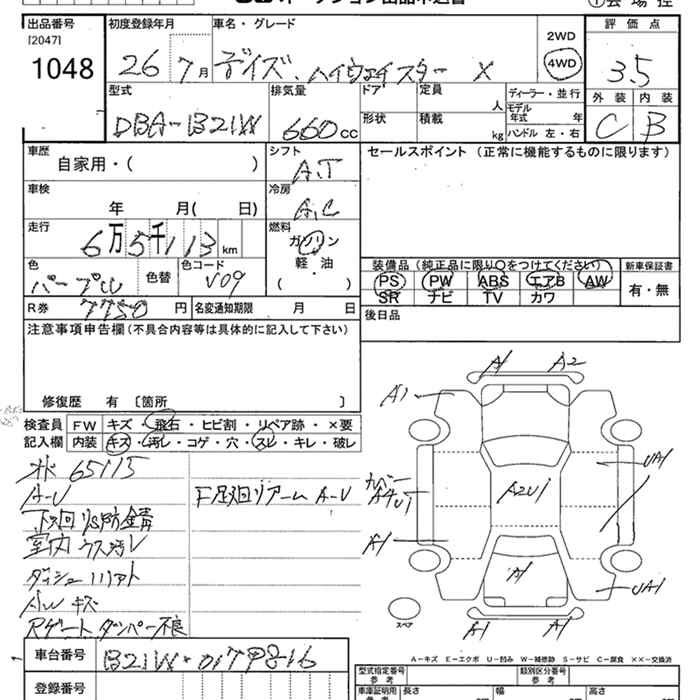 出品番号 初度登録年月 車名・グレード 評価点
[2047] 2WD
1048 26 7月 デイズ ハイウェイスター X 4WD 3.5
型式 排気量 ドア 定員 人 ディーラー・並行 外装 内装
DBA-B21W 660cc 形状 積載 kg モデル年式 年 C B
ハンドル 左・右
車歴 シフト セールスポイント (正常に機能するものに限ります)
自家用・( ) A.T
車検 冷房
年 月( 日) A.C
走行 燃料
6万5千113km ガソリン
軽・油
( )
色 色替 色コード 装備品 (純正品に限り〇をつけてください) 新車保証書
パープル V09 PS PW ABS エアB AW 有・無
SR ナビ TV カワ
R券 7750円 名変通知期限 月 日 後日品
注意事項申告欄 (不具合内容等は具体的に記入して下さい)
修復歴 有 〔箇所 〕
検査員 FW キズ・飛石・ヒビ割・リペア跡・×要
記入欄 内装 キズ・汚レ・コゲ・穴・スレ・キレ・破レ
65115
A-U
下廻り 錆
室内 ウス汚レ
AW キズ
Rゲート ダンパー不良
F足廻りアーム A-U
A1 A2
A1
UA1
カバー
A4U1
A2U1
A1
A1
UA1
A1 A1
スペア
A-キズ E-エクボ U-凹み W-補修跡 S-サビ C-腐食 ××-交換済
車台番号 B21W-
登録番号
型式指定番号 参考 類別区分番号 参考
車庫証明用 参考 長さ 幅 高さ